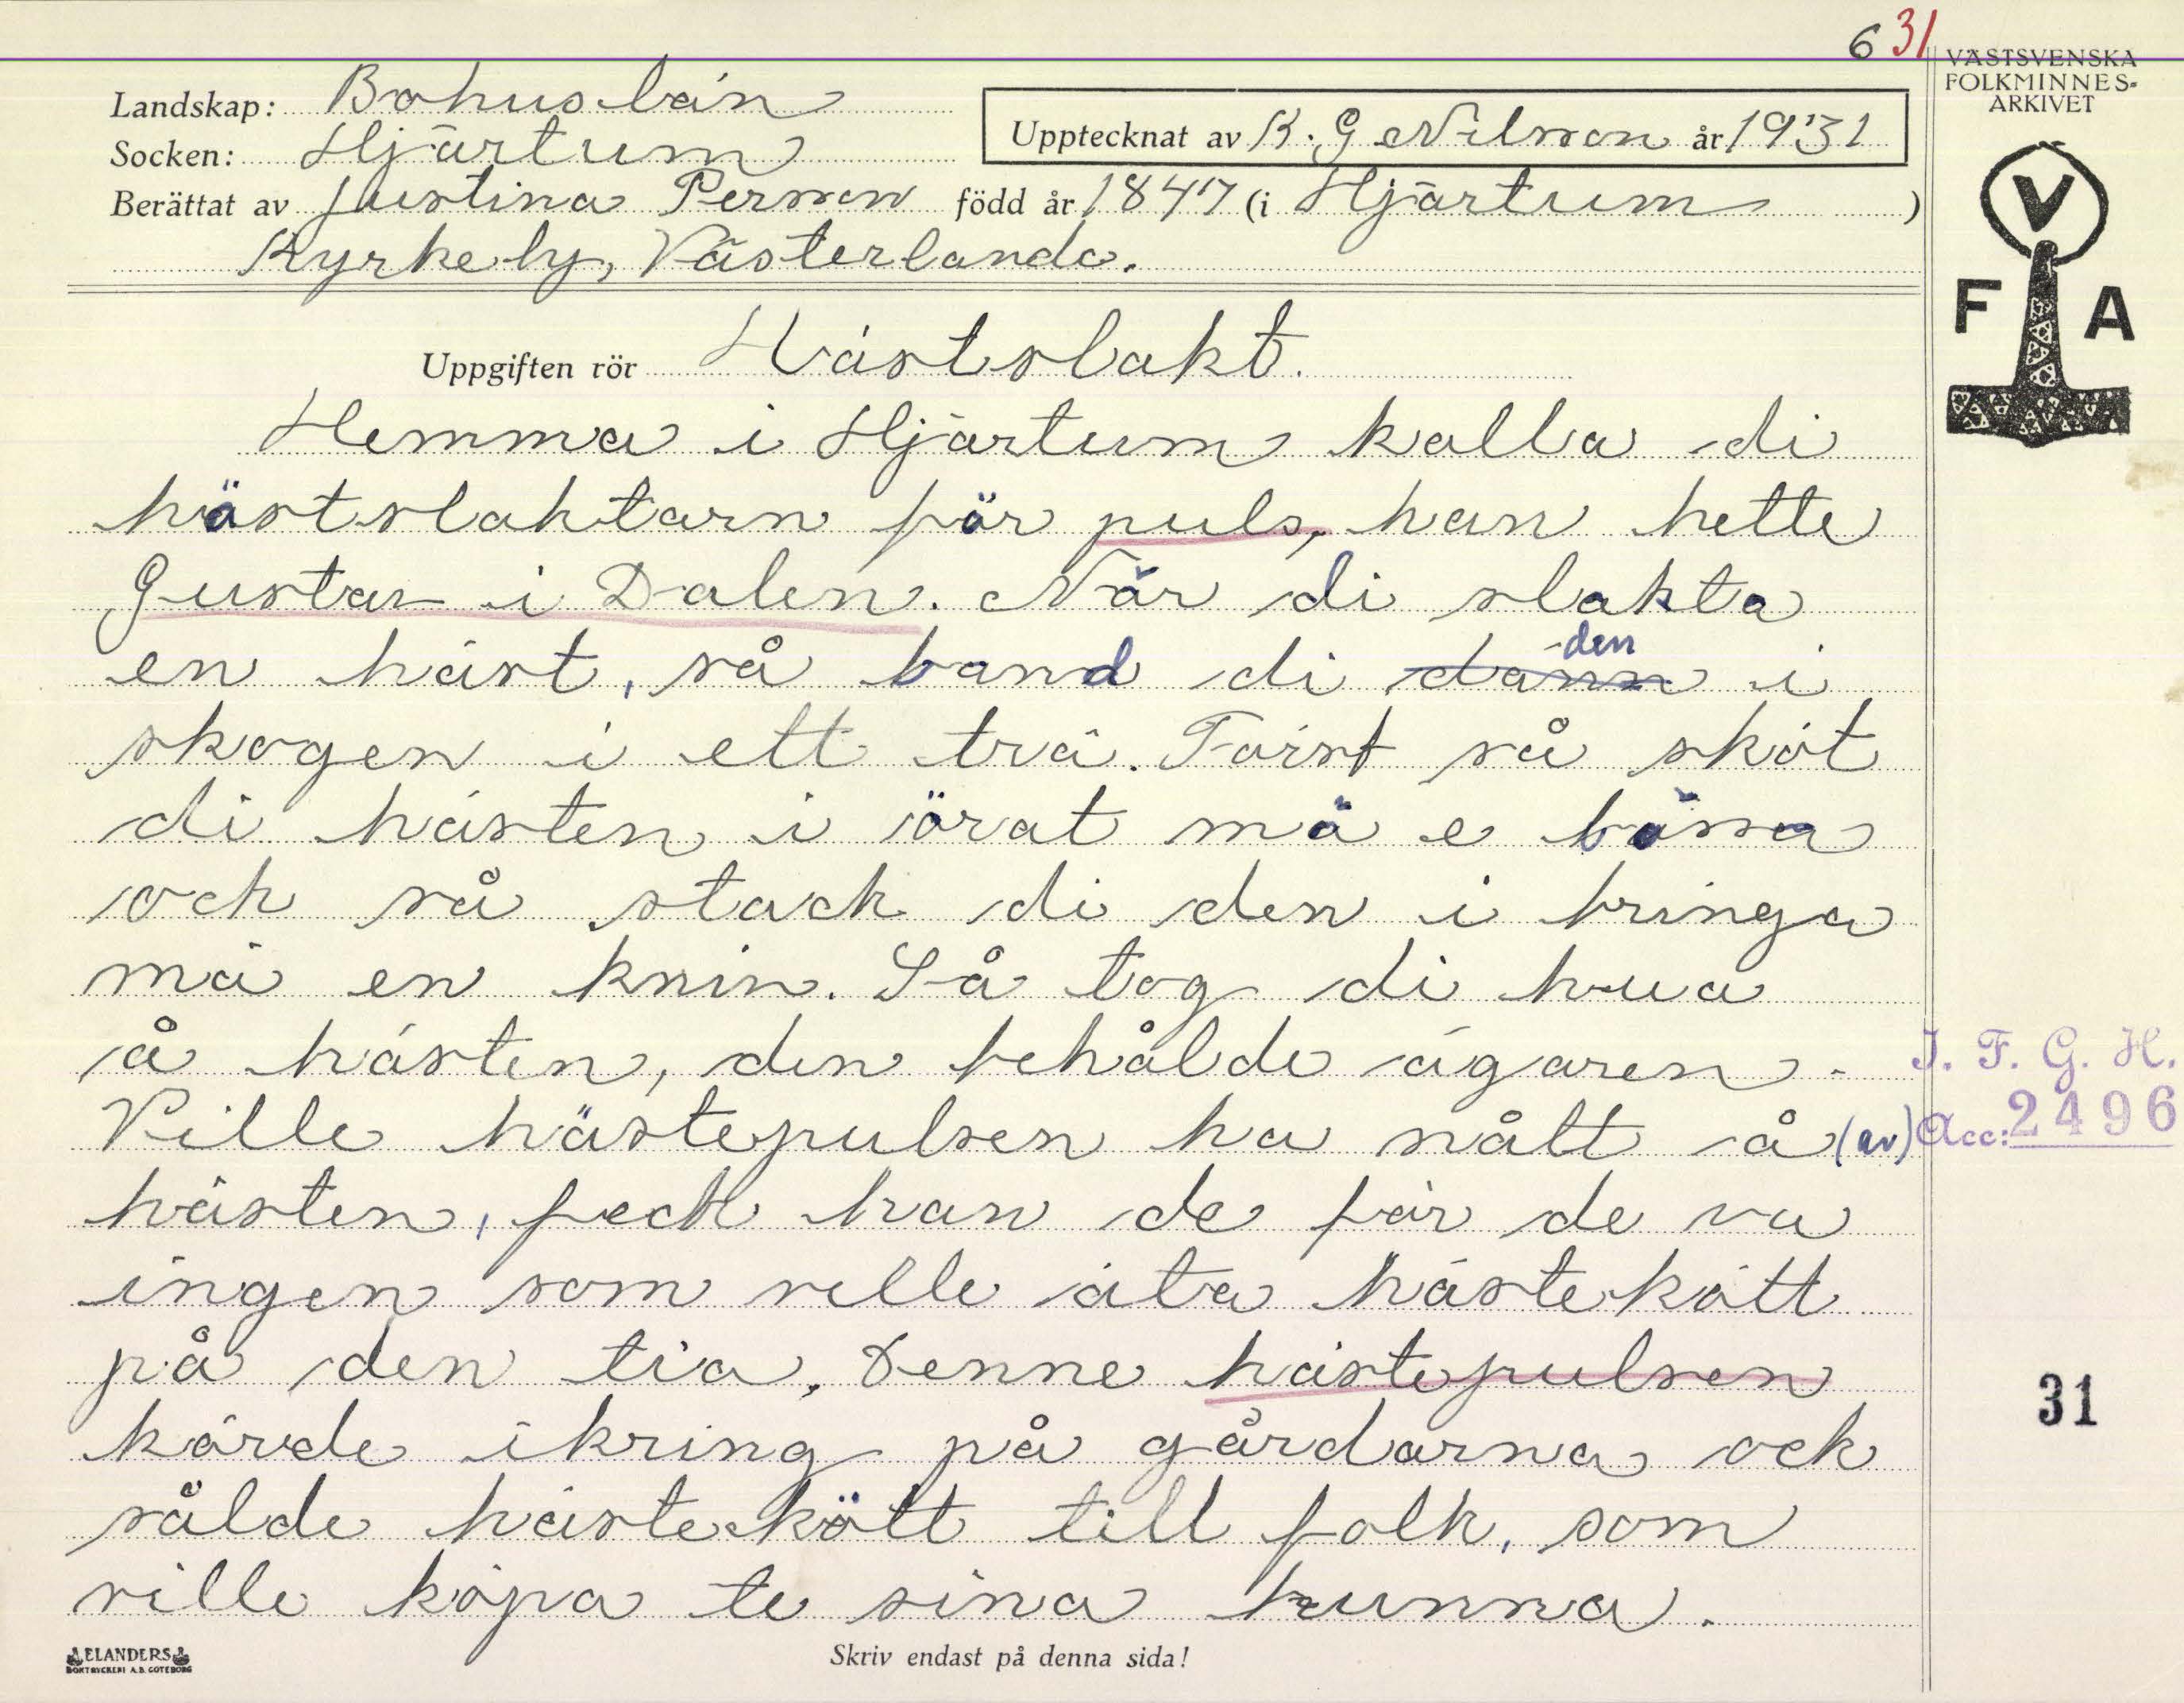 6 31
VÄSTSVENSKA
FOLKMINNES-
ARKIVET
Landskap: Bohuslän
Socken: Hjärtum
Upptecknat av K. G Nilsson år 1931
Berättat av Justina Persson född år 1847 (i Hjärtum )
Kyrkeby, Västerlanda.
V
F A
Uppgiften rör Hästslakt.
Hemma i Hjärtum kalla di
hästslahtarn för puls, han hette
Gustav i Dalen. När di slakta
en häst, så band di dänn den i
skogen i ett trä. Först så sköt
di hästen i örat mä e bössa
och så stack di den i bringa
mä en kniv. Så tog di hua
å hästen, den behålde ägaren.
Ville hästepulsen ha nått å (av)
hästen, feck han de för de va
ingen som velle äta hästekött
på den tia. Denne hästepulsen
körde ikring på gårdarna och
sålde hästekött till folk, som
ville köpa te sina hunna.
I. F. G. H.
Acc: 2496
31
ELANDERS
BOKTRYCKERI A.B. GÖTEBORG
Skriv endast på denna sida!